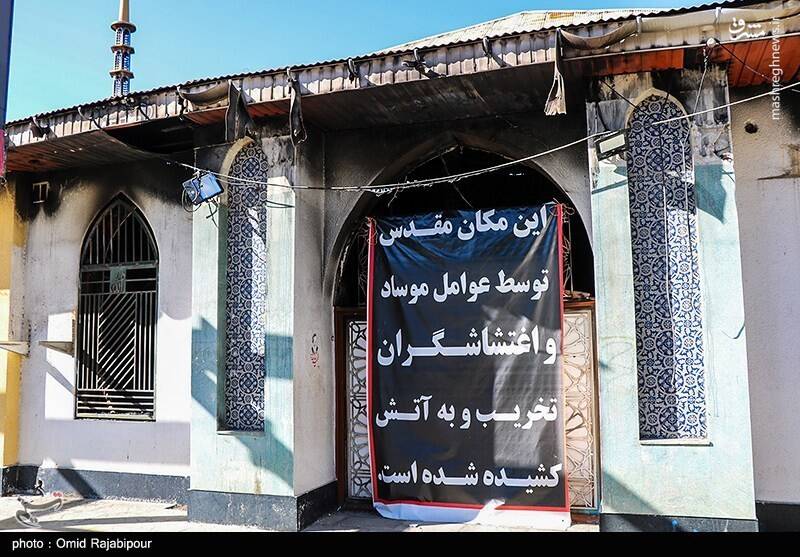 مشرق
mashreghnews.ir
این مکان مقدس
توسط عوامل موساد
و اغتشاشگران
تخریب و به آتش
کشیده شده است.
photo : Omid Rajabipour